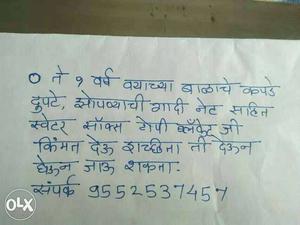 ० ते १ वर्ष वयाच्या बाळाचे कपडे
दुपटे, झोपव्याची गादी नेट सहित
स्वेटर सॉक्स टोपी ब्लँकेट जी
किंमत देऊ इच्छिता ती देऊन
घेऊन जाऊ शकता.
संपर्क 9552537457
OLX